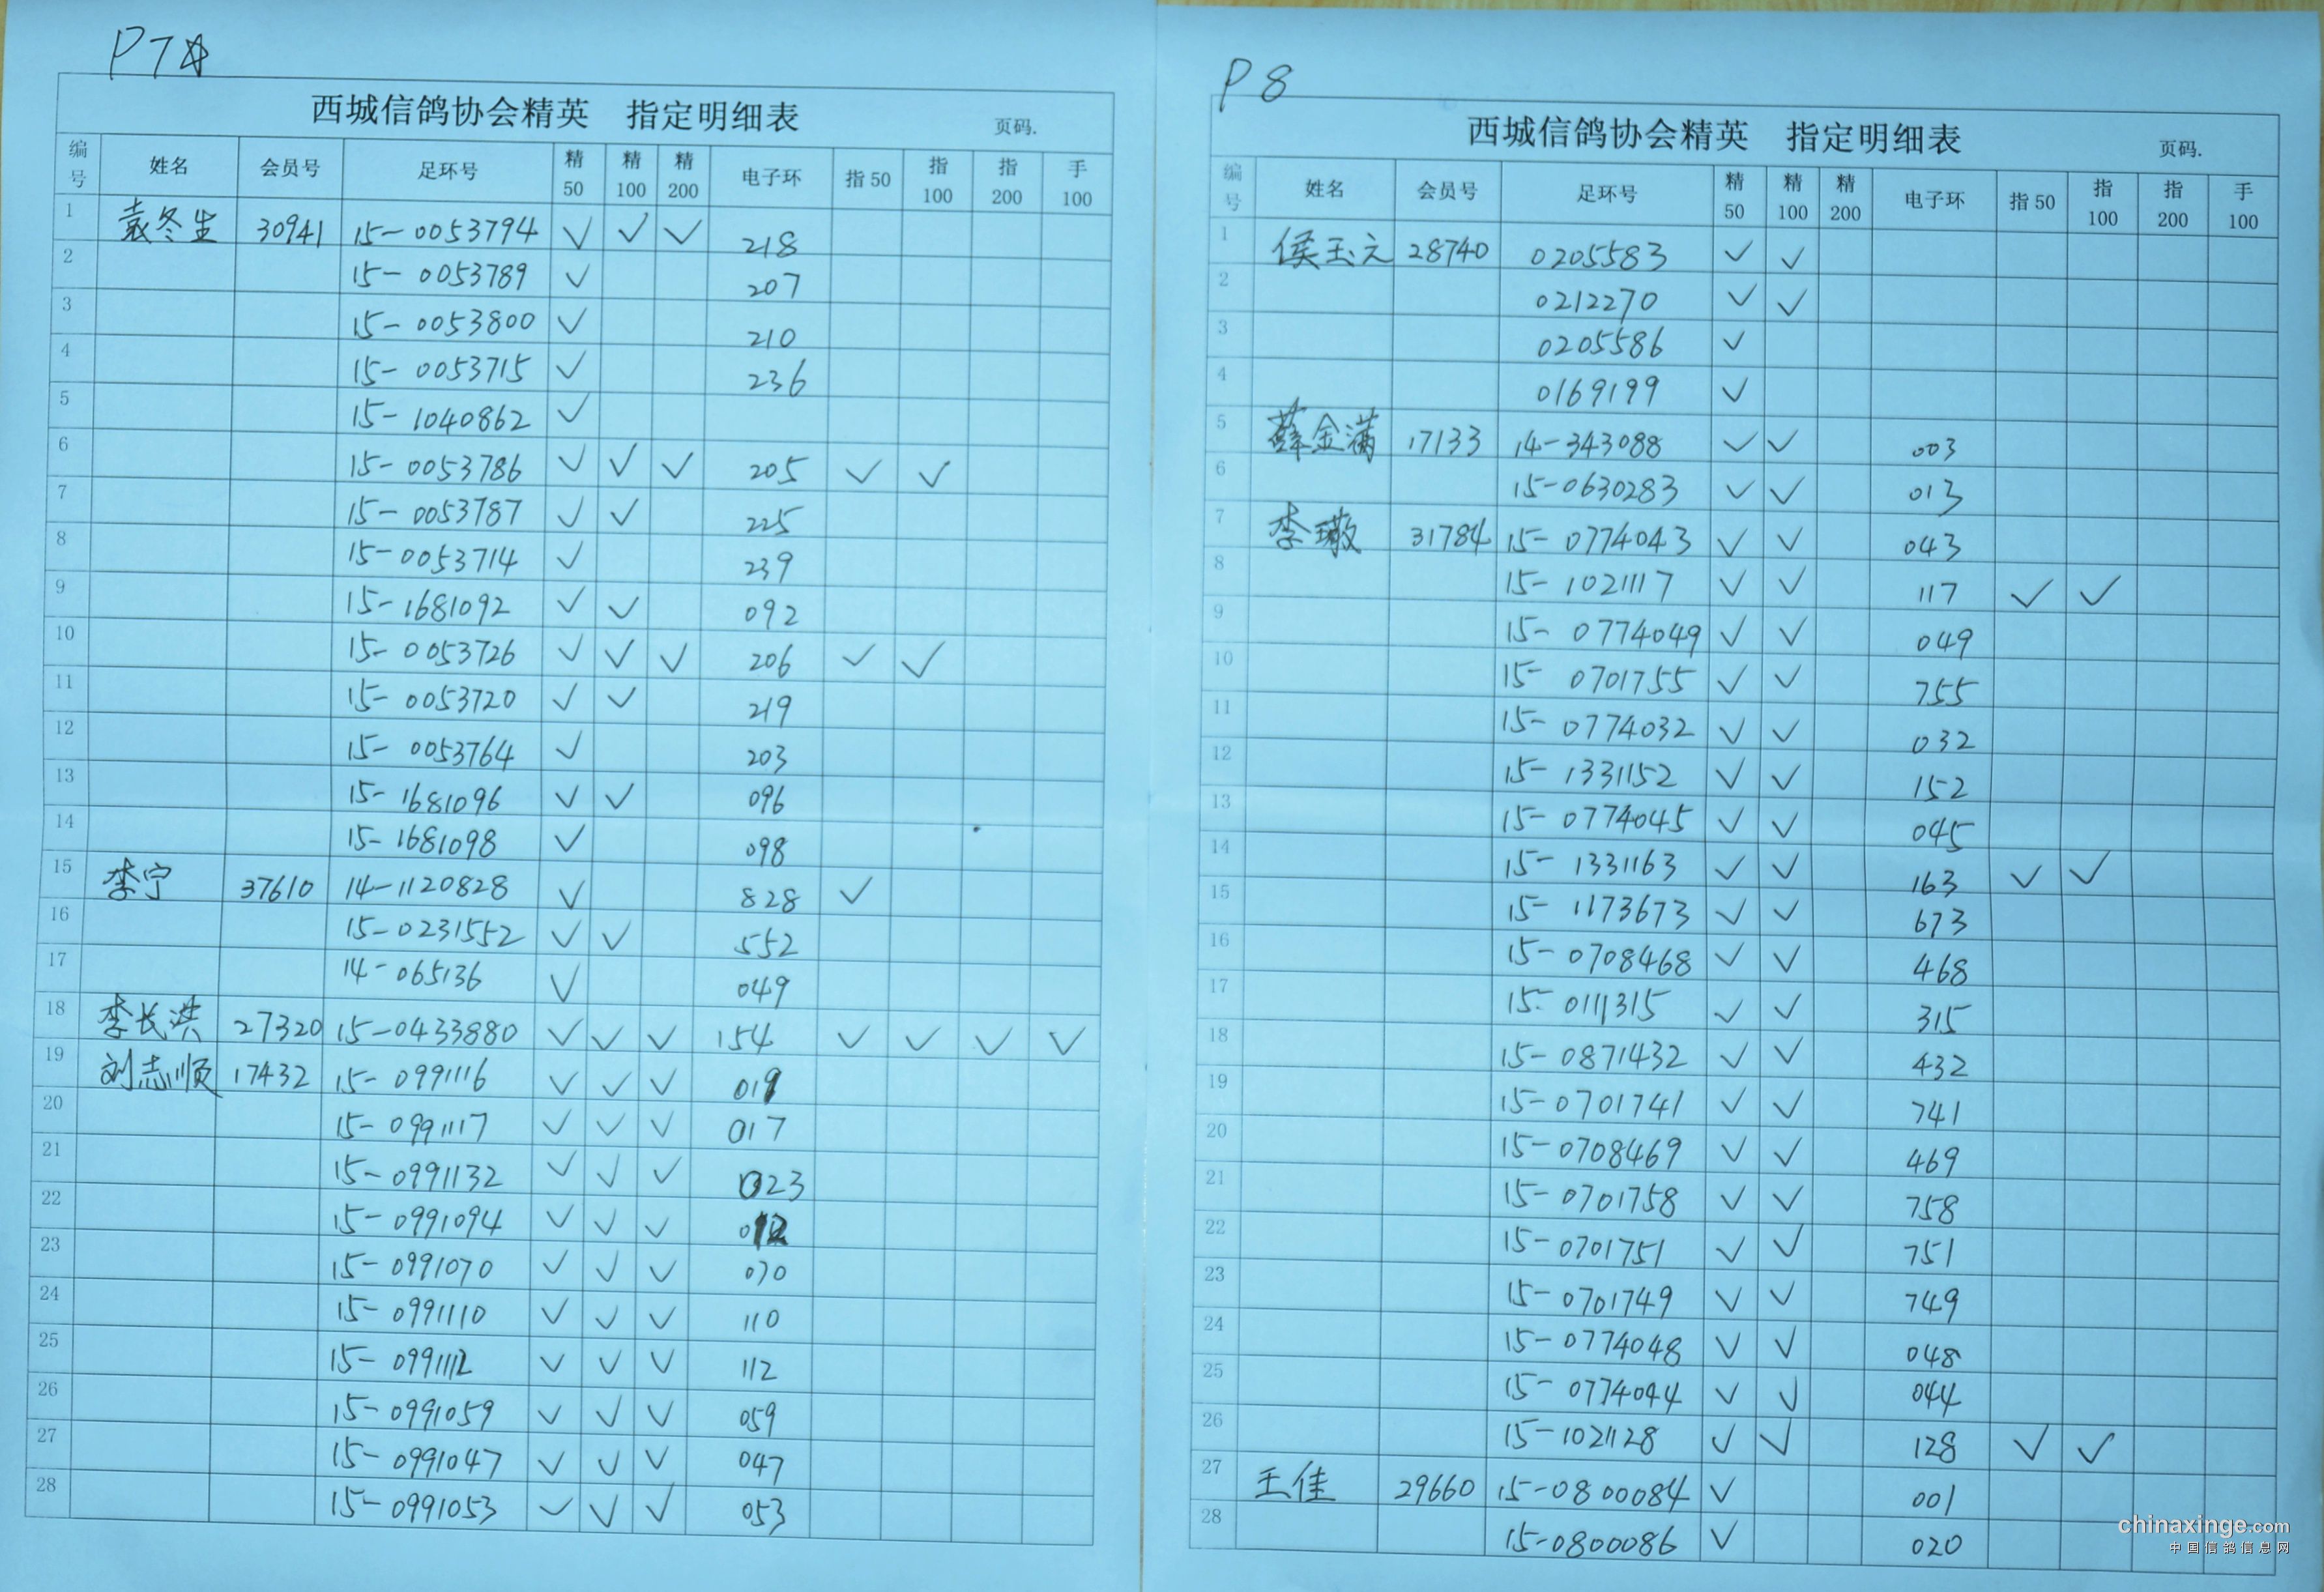 P7
西城信鸽协会精英 指定明细表 页码.
编号 姓名 会员号 足环号 精50 精100 精200 电子环 指50 指100 指200 手100
1 袁冬生 30941 15-0053794 √ √ √ 218
2 15-0053789 √ 207
3 15-0053800 √ 210
4 15-0053715 √ 236
5 15-1040862 √
6 15-0053786 √ √ √ 205 √ √
7 15-0053787 √ √ 225
8 15-0053714 √ 239
9 15-1681092 √ √ 092
10 15-0053726 √ √ √ 206 √ √
11 15-0053720 √ √ 219
12 15-0053764 √ 203
13 15-1681096 √ √ 096
14 15-1681098 √ 098
15 李宁 37610 14-1120828 √ 828 √
16 15-0231552 √ √ 552
17 14-065136 √ 049
18 李长洪 27320 15-0433880 √ √ √ 154 √ √ √ √
19 刘志顺 17432 15-0991116 √ √ √
20 15-0991117 √ √ √ 017
21 15-0991132 √ √ √ 023
22 15-0991094 √ √ √ 012
23 15-0991070 √ √ √ 070
24 15-0991110 √ √ √ 110
25 15-0991112 √ √ √ 112
26 15-0991059 √ √ √ 059
27 15-0991047 √ √ √ 047
28 15-0991053 √ √ √ 053
P8
西城信鸽协会精英 指定明细表 页码.
编号 姓名 会员号 足环号 精50 精100 精200 电子环 指50 指100 指200 手100
1 侯玉元 28740 0205583 √ √
2 0212270 √ √
3 0205586 √
4 0169199 √
5 薛金满 17133 14-343088 √ √ 003
6 15-0630283 √ √ 013
7 李璥 31784 15-0774043 √ √ 043
8 15-1021117 √ √ 117 √ √
9 15-0774049 √ √ 049
10 15-0701755 √ √ 755
11 15-0774032 √ √ 032
12 15-1331152 √ √ 152
13 15-0774045 √ √ 045
14 15-1331163 √ √ 163 √ √
15 15-1173673 √ √ 673
16 15-0708468 √ √ 468
17 15-0111315 √ √ 315
18 15-0871432 √ √ 432
19 15-0701741 √ √ 741
20 15-0708469 √ √ 469
21 15-0701758 √ √ 758
22 15-0701751 √ √ 751
23 15-0701749 √ √ 749
24 15-0774048 √ √ 048
25 15-0774044 √ √ 044
26 15-1021128 √ √ 128 √ √
27 王佳 29660 15-0800084 √ 001
28 15-0800086 √ 020
chinaxinge.com
中国信鸽信息网